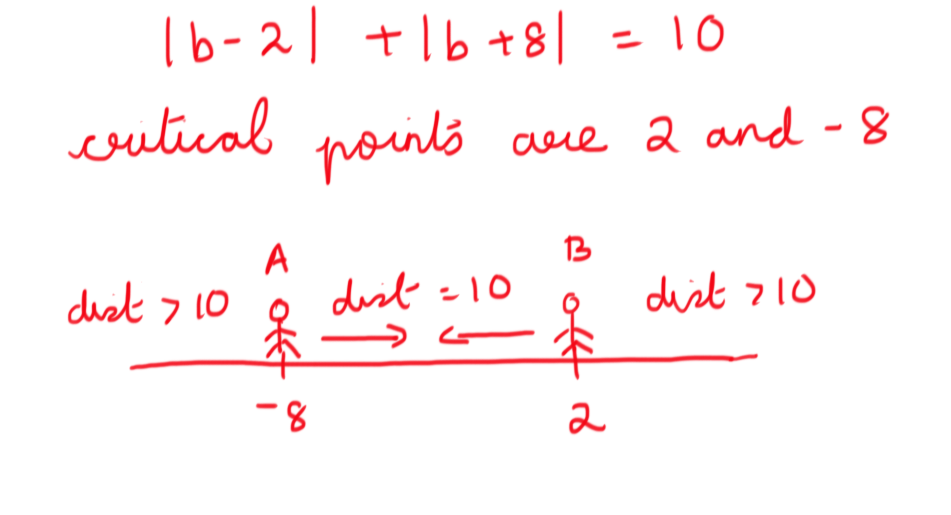 |b-2| + |b+8| = 10
critical points are 2 and -8
A B
dist > 10 dist = 10 dist > 10
-8 2